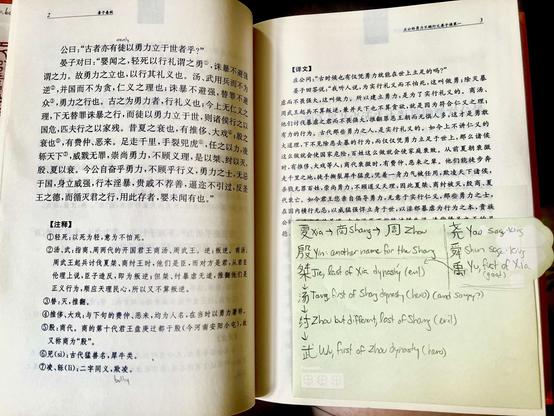 2 晏子春秋
merely
公曰：“古者亦有徒以勇力立于世者乎？”
晏子对曰：“婴闻之，轻死以行礼谓之勇①，诛暴不避强
谓之力。故勇力之立也，以行其礼义也。汤、武用兵而不为
逆②，并国而不为贪，仁义之理也；诛暴不避强，替罪不避
众③，勇力之行也。古之为勇力者，行礼义也；今上无仁义之
理，下无替罪诛暴之行，而徒以勇力立于世，则诸侯行之以
国危，匹夫行之以家残。昔夏之衰也，有推侈、大戏④；殷之
衰也⑤，有费仲、恶来。足走千里，手裂兕虎⑥，任之以力，凌
轹天下⑦，威戮无罪，崇尚勇力，不顾义理，是以桀、纣以灭，
殷、夏以衰。今公自奋乎勇力，不顾乎行义，勇力之士，无忌
于国，身立威强，行本淫暴，贵戚不荐善，逼迩不引过，反圣
王之德，而循灭君之行，用此存者，婴未闻有也。”
【注释】
①轻死：以死为轻，意为不怕死。
②汤、武：指商、周两代的开国君王商汤、周武王。逆：叛逆。商汤、
周武王起兵讨伐夏桀、商纣王时，他们是臣，而对方是君，从君臣
伦理上说，臣子造反，即为叛逆，但桀、纣暴虐无道，推翻他们是
正义行为，顺应天理民心，所以又不算叛逆。
③替：灭，推翻。
④推侈、大戏：与下句的费仲、恶来，均为人名，在当时以勇力著称。
⑤殷：商代。商的第十代君王盘庚迁都于殷（今河南安阳小屯），故
又称商为“殷”。
⑥兕（sì）：古代猛兽名，犀牛类。
⑦凌、轹（lì）：二字同义，欺凌。
bully
庄公矜勇力不顾行义晏子谏第一 3
【译文】
庄公问：“古时候也有仅凭勇力就能在世上立足的吗？”
晏子回答说：“我听人说，为实行礼义而不怕死，这叫做勇；除灭暴
虐而不畏强大，这叫做力。所以建立勇力，是为了实行礼义的。商汤、
周武王起兵不算叛逆，兼并天下也不算贪婪，就是因为符合仁义之理；
他们讨伐暴虐之君而不畏强大，推翻罪恶王朝而无惧人多，这才是勇敢
有力的行为。古代那些勇力之人，是实行礼义的。如今上不讲仁义的
大道理，下不见除恶去暴的行为，而仅仅凭勇力立足于世上，那么诸侯
这么做就会使国家危险，百姓这么做就会使家庭衰败。从前夏朝衰微
时，有推侈、大戏等人；商代衰微时，有费仲、恶来之辈。他们能徒步奔
走千里之地，徒手撕裂犀牛猛虎，凭着一身力气就任用，欺凌天下诸侯，
杀戮无罪百姓，崇尚勇力，不顾道义天理，因此夏桀、商纣被灭，殷商、夏
代衰亡。如今君王您亲自倡导勇力，不顾实行仁义，那些勇力之士，
在国内横行无忌，以威猛强悍立身于世，以淫邪暴虐为行为之本，贵族
夏 Xia → 商 Shang → 周 Zhou
殷 Yin: another name for the Shang
桀 Jie, last of Xia dynasty (evil)
汤 Tang, first of Shang dynasty (hero)
纣 Zhou but different, last of Shang (evil)
武 Wu, first of Zhou dynasty (hero)
尧 Yao sage-king
舜 Shun sage-king
禹 Yu, first of Xia
(good)